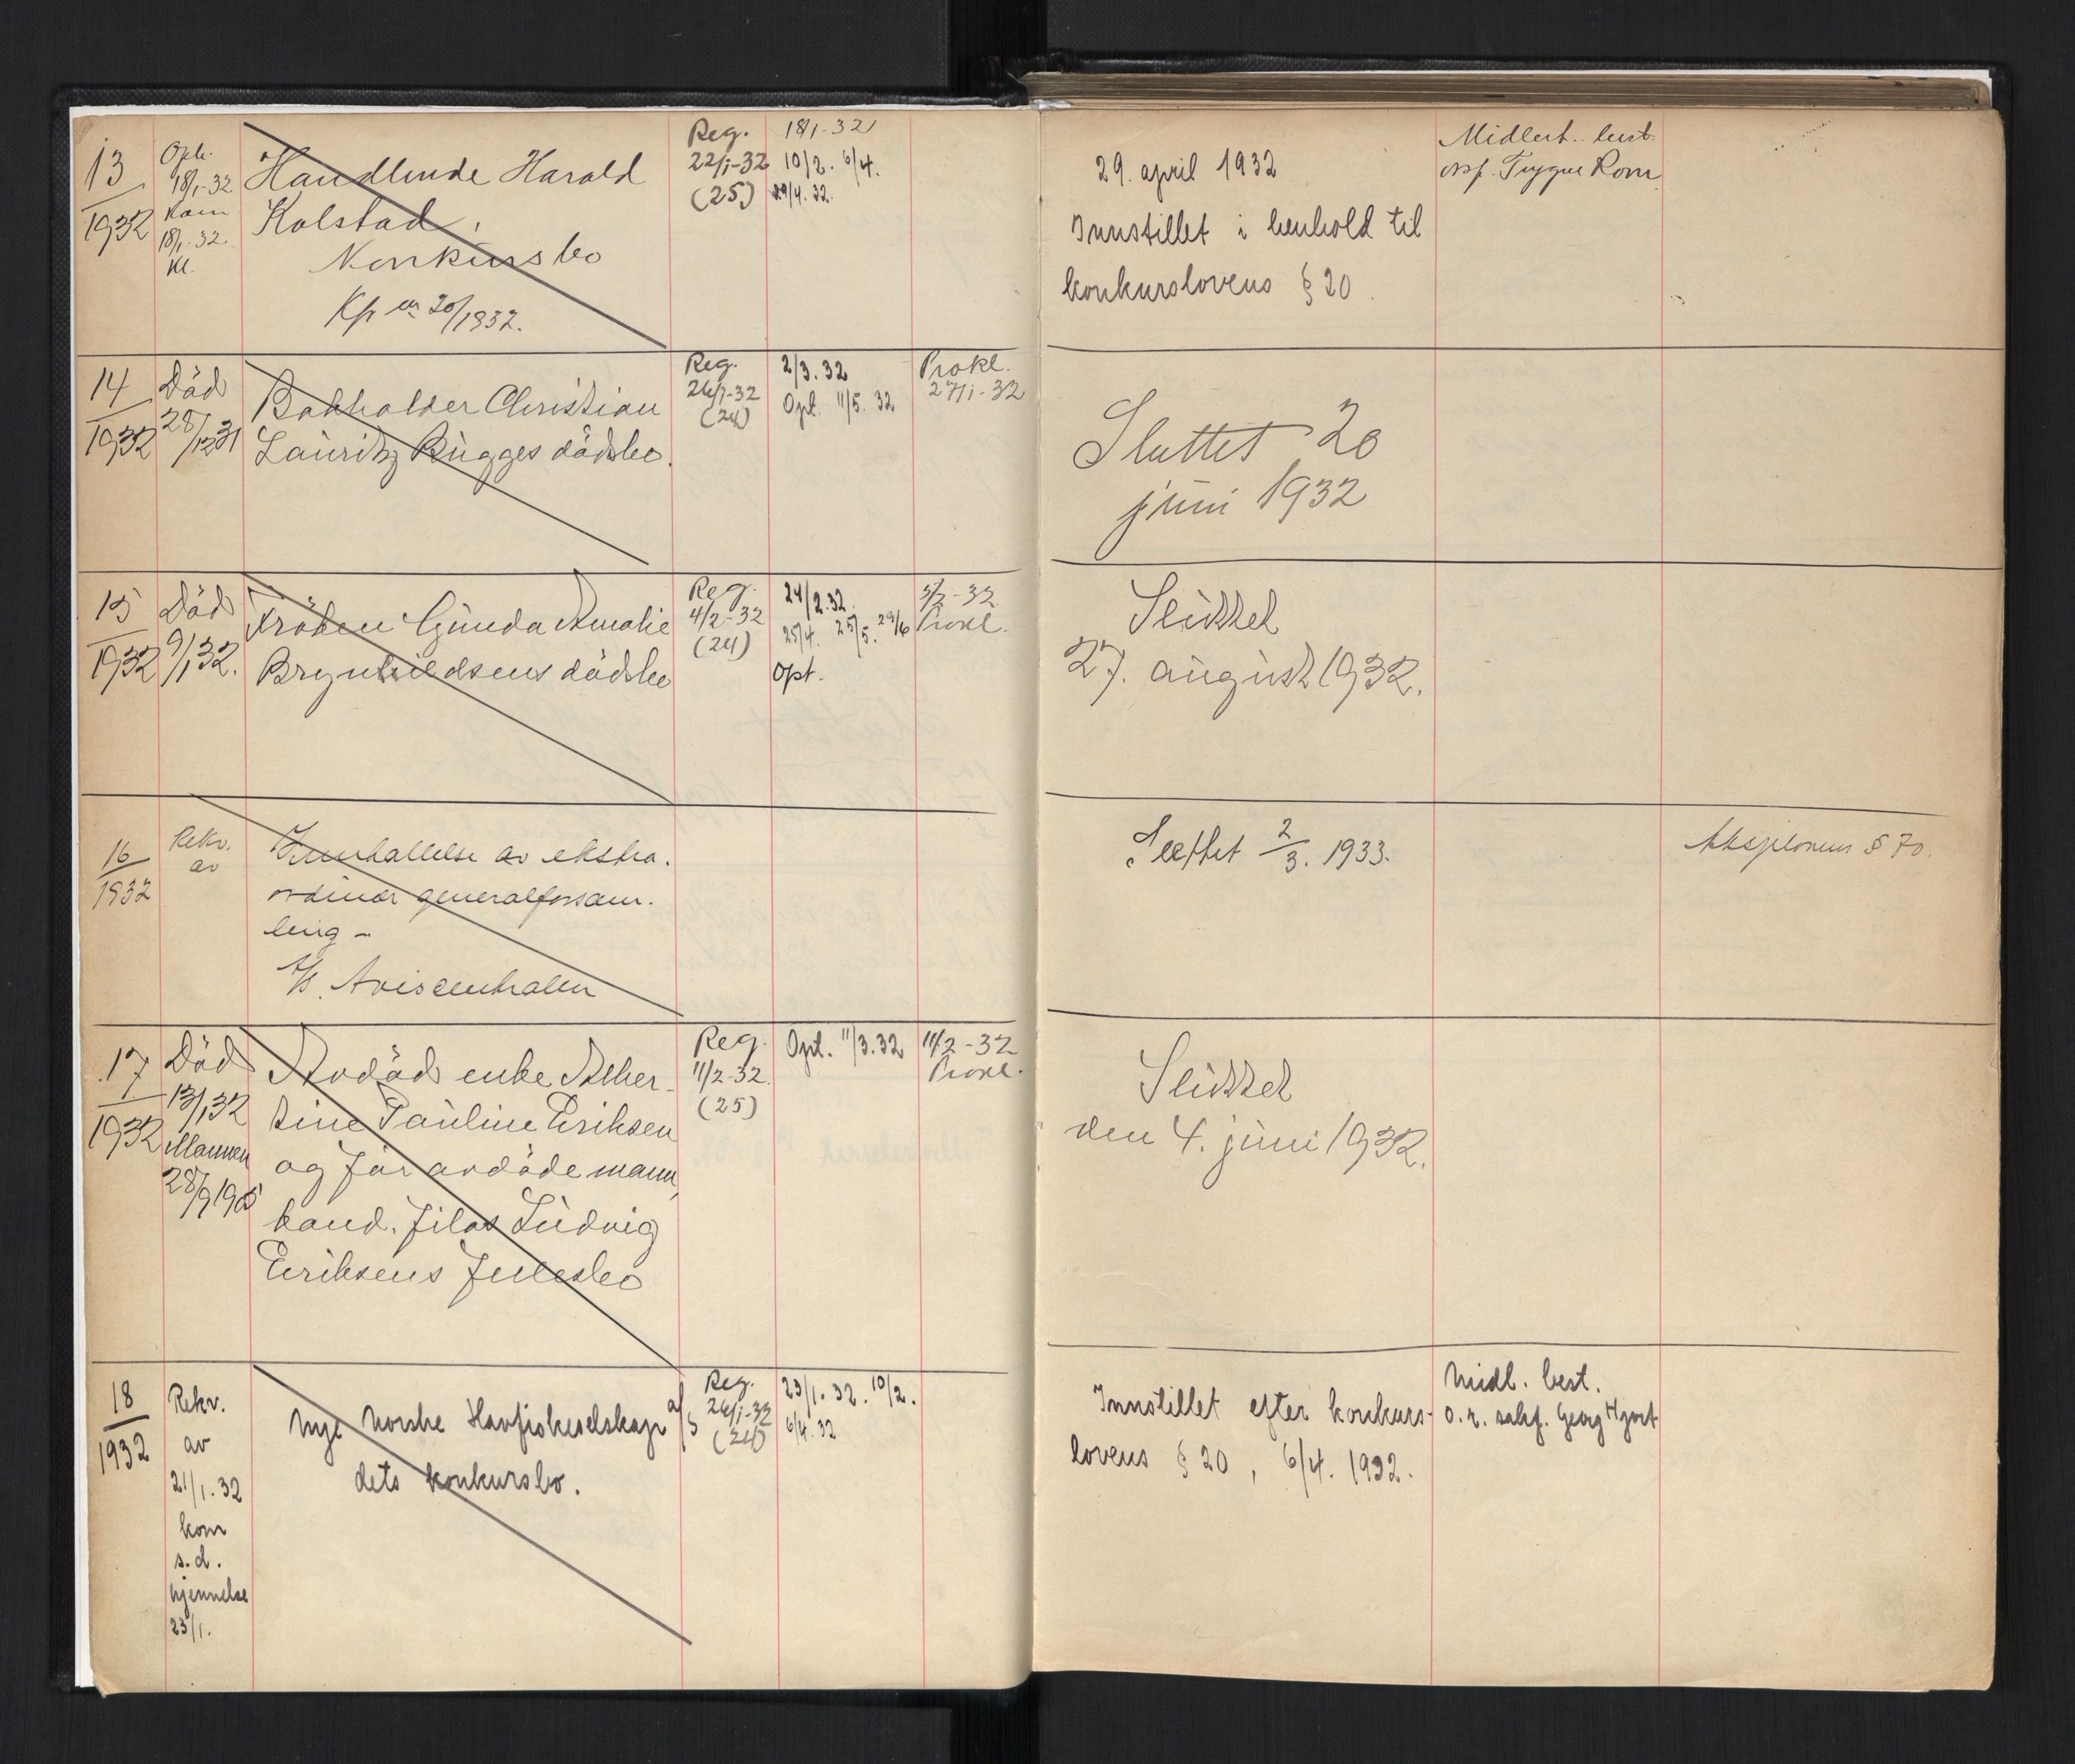 13
1932
Oph.
18/1-32
Kom
18/1-32
Kl.
Handlende Harold
Kolstad,
Konkursbo
Kp nr 20/1932.
Reg.
22/1-32
(25)
18/1-32
10/2. 6/4.
29/4. 32.
29. april 1932
Innstillet i henhold til
konkurslovens § 20.
Midlert. best.
orsf. Trygve Rom
14
1932
Död
28/12 31
Bokholder Christian
Lauritz Bugges dödsbo.
Reg.
26/1-32
(24)
2/3. 32
Opt. 11/5. 32
Prokl.
27/1-32
Sluttet 20
juni 1932
15
1932
Död
9/1 32.
Fröken Gunda Amalie
Brynhildsens dödsbo
Reg.
4/2-32
(24)
24/2. 32.
25/4. 25/5. 29/6
Opt.
5/2-32
Prokl.
Sluttet
27. august 1932.
16
1932
Rekv.
av
Innkallelse av ekstra.
ordinær generalforsam.
ling –
A/S. Aviscentralen
Sluttet 2/3. 1933.
Aksjelovens § 70.
17
1932
Död
13/1 32
Mannen
28/9 1905
Avdöd enke Alber-
tine Pauline Eriksen
og för avdöde mann,
kand. filos Ludvig
Eriksens fellesbo
Reg.
11/2-32.
(25)
Opt. 11/3. 32
11/2-32
Prokl.
Sluttet
den 4. juni 1932.
18
1932
Rekv.
av
21/1. 32
kom
s. d.
kjennelse
23/1.
Nye Norske Havfiskeselskap a/s
dets konkursbo.
Reg.
26/1-32
(24)
23/1. 32. 10/2.
6/4. 32
Innstillet efter konkurs-
lovens § 20, 6/4. 1932.
Midl. best.
o. r. sakf. Georg Hjort